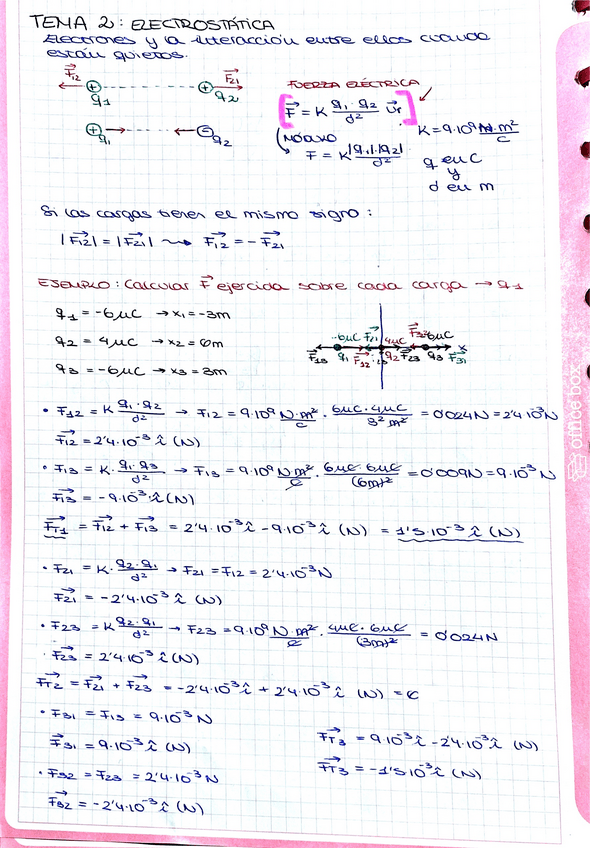 TEMA 2: ELECTROSTÁTICA
Electrones y la interacción entre ellos cuando
están quietos.
F12 F21
q1 q2
q1 q2
FUERZA ELÉCTRICA
F = K q1 · q2 / d² ur
K = 9·10⁹ N·m²/C
MÓDULO
F = K |q1|·|q2| / d²
q en C
y
d en m
Si las cargas tienen el mismo signo:
|F12| = |F21| ⇝ F12 = - F21
EJEMPLO: Calcular F ejercida sobre cada carga → q1
q1 = -6μC → x1 = -3m
q2 = 4μC → x2 = 0m
q3 = -6μC → x3 = 3m
-6μC F21 4μC F32 -6μC
F13 q1 F12 q2 F23 q3 F31 x
• F12 = K q1 · q2 / d² → F12 = 9·10⁹ N·m²/C · 6μC · 4μC / 3² m² = 0'024N = 2'4·10⁻³N
F12 = 2'4·10⁻³ î (N)
• F13 = K · q1 · q3 / d² → F13 = 9·10⁹ N·m²/C · 6μC · 6μC / (6m)² = 0'009N = 9·10⁻³ N
F13 = -9·10⁻³ î (N)
FT1 = F12 + F13 = 2'4·10⁻³ î - 9·10⁻³ î (N) = 1'5·10⁻³ î (N)
• F21 = K · q2 · q1 / d² → F21 = F12 = 2'4·10⁻³N
F21 = -2'4·10⁻³ î (N)
• F23 = K q2 · q3 / d² → F23 = 9·10⁹ N·m²/C · 4μC · 6μC / (3m)² = 0'024N
F23 = 2'4·10⁻³ î (N)
FT2 = F21 + F23 = -2'4·10⁻³ î + 2'4·10⁻³ î (N) = 0
• F31 = F13 = 9·10⁻³ N
F31 = 9·10⁻³ î (N)
• F32 = F23 = 2'4·10⁻³ N
F32 = -2'4·10⁻³ î (N)
FT3 = 9·10⁻³ î - 2'4·10⁻³ î (N)
FT3 = -1'5·10⁻³ î (N)
office box